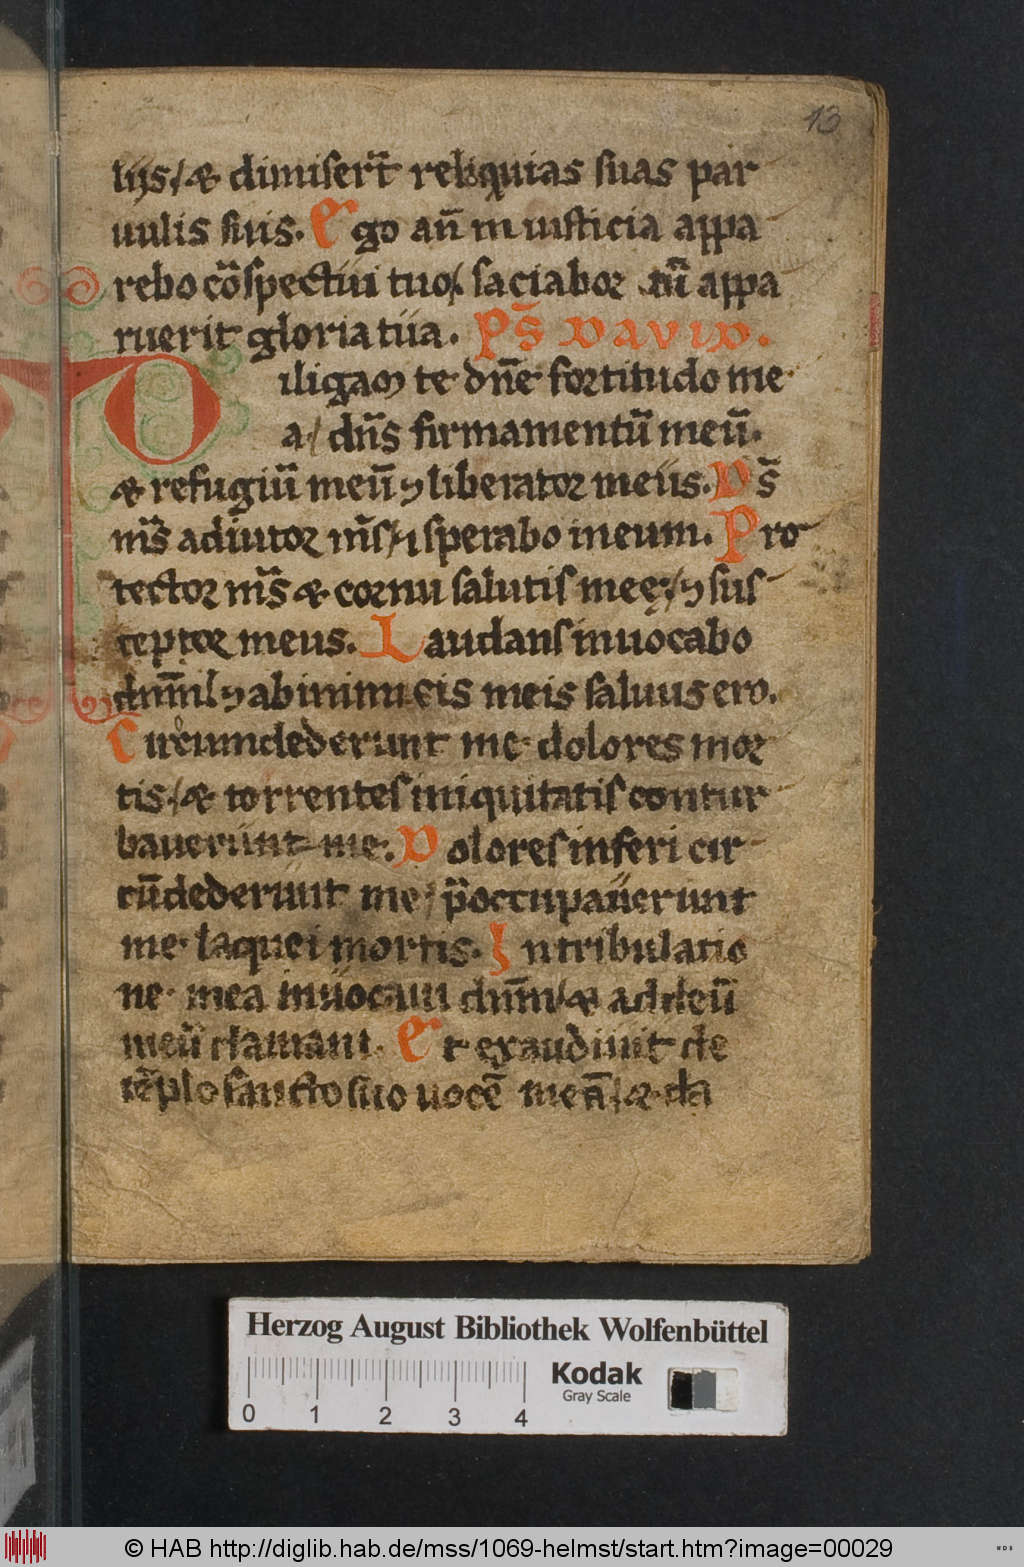 13
lijs / & dimiser̄t reliquias suas par
uulis suis. Ego aū in iusticia appa
rebo cōspectui tuo / saciabor cū appa
ruerit gloria tua. Ps̄ DAVID.
Diligam te dn̄e fortitudo me
a / dn̄s firmamentū meū.
& refugiū meū ⁊ liberator meus. Ds̄
m̄s adiutor m̄s / ⁊ sperabo in eum. Pro
tector m̄s & cornu salutis meę / ⁊ sus
ceptor meus. Laudans inuocabo
dn̄m / ⁊ ab inimicis meis saluus ero.
Circumdederunt me dolores mor
tis / & torrentes iniquitatis contur
bauerunt me. Dolores inferi cir
cūdederunt me p̄occupauerunt
me laquei mortis. In tribulatio
ne mea inuocaui dn̄m / & ad deū
meū clamaui. Et exaudiuit de
tēplo sancto suo uocē meā / & cla
Herzog August Bibliothek Wolfenbüttel
0 1 2 3 4 Kodak
Gray Scale
© HAB http://diglib.hab.de/mss/1069-helmst/start.htm?image=00029